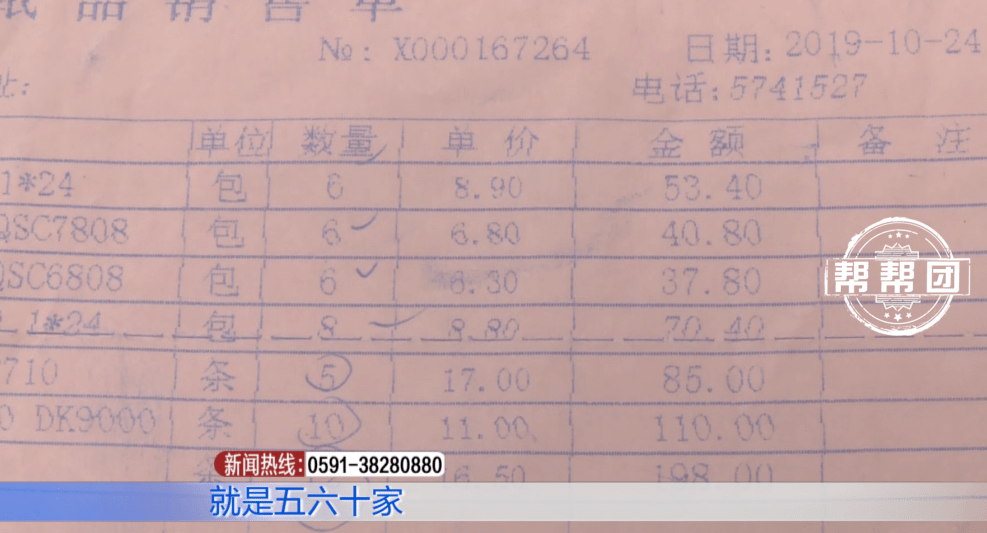 纸品销售单
№: X000167264 日期: 2019-10-24
址: 电话: 5741527
单位 数量 单价 金额 备注
1*24 包 6 8.90 53.40
QSC7808 包 6 6.80 40.80
QSC6808 包 6 6.30 37.80
1*24 包 8 8.80 70.40
710 条 5 17.00 85.00
0 DK9000 条 10 11.00 110.00
6.50 198.00
帮帮团
新闻热线: 0591-38280880
就是五六十家